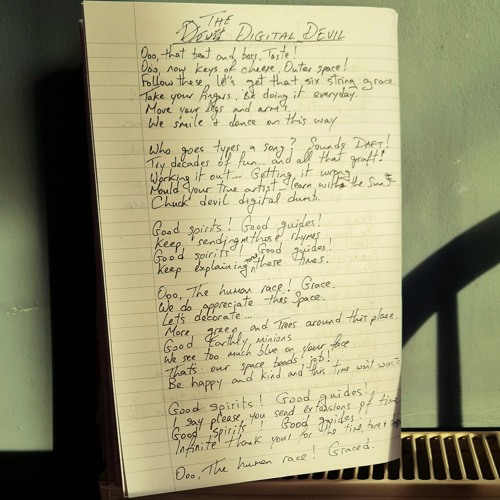 THE
DIGITAL DEVIL
Ooo, that beat and bass, Taste!
Ooo, now keys of cheese, Outer space!
Follow these, let's get that six string grace
Take your fingers, Be doing it everyday.
Move your legs and arms,
We smile & dance on this way
Who goes types a song? Sounds DAFT!
Try decades of fun... and all that graft!
Working it out... Getting it wrong
Mould your true artist - learn with the Sun
Chuck devil digital dumb.
Good spirits! Good guides!
Keep sending those rhymes
Good spirits! Good guides!
Keep explaining these times.
Ooo, The human race! Grace.
We do appreciate this Space.
Let's decorate...
More green and Trees around this place.
Good Earthly minions
We see too much blue on your face
Thats our space beads job!
Be happy and kind and this time won't waste
Good spirits! Good guides!
I say please, you send extensions of time
Good Spirits! Good guides.
Infinite thank yours for the time,
Ooo, The human race! Graced.